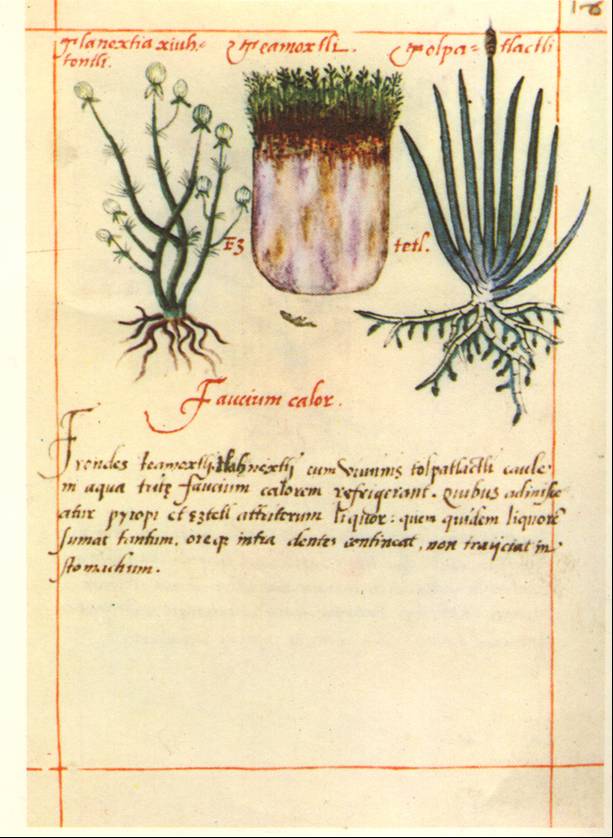 18
Tlanextia xiuh=
tontli.
Teamoxtli.
Tolpa= tlactli
Ez tetl.
Faucium calor.
Frondes teamoxtli, cum tolpatlactli caule
in aqua tritę faucium calorem refrigerant. Quibus admisce
atur pyropi et ęzteli attritorum liquor: quem quidem liquorē
sumat tantum, oreq̢ intra dentes contineat, non traijciat in
stomachum.